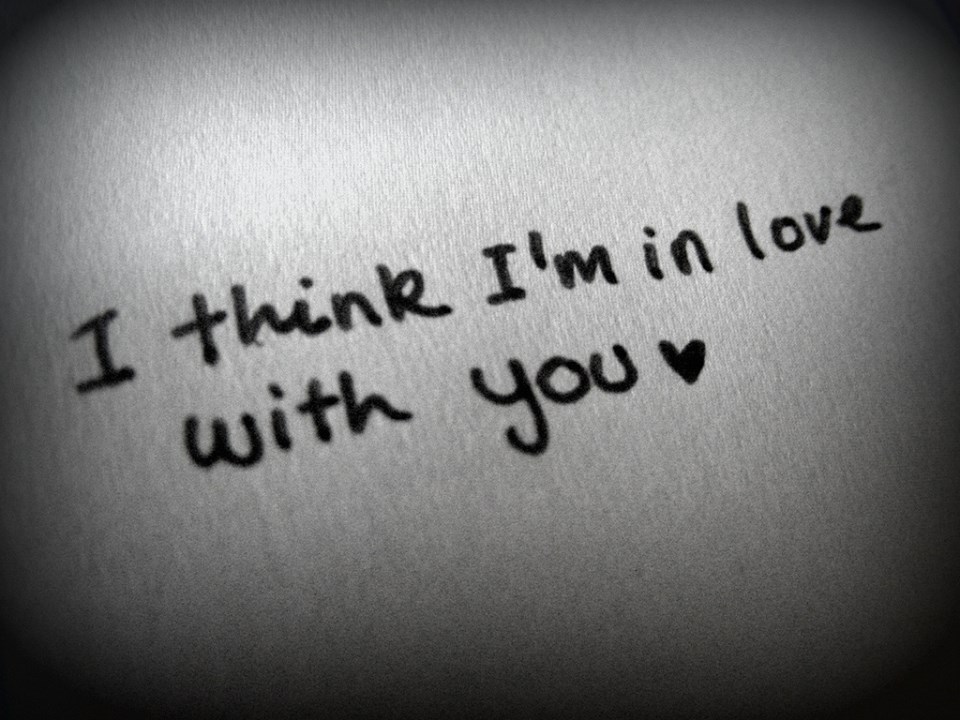 I think I'm in love
with you ♥